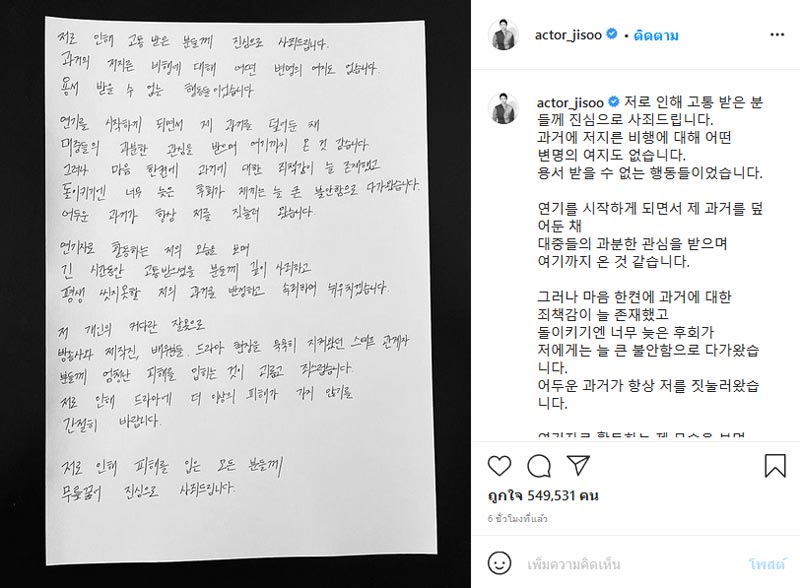 저로 인해 고통 받은 분들께 진심으로 사죄드립니다.
과거의 저지른 비행에 대해 어떤 변명의 여지도 없습니다.
용서 받을 수 없는 행동들이었습니다.
연기를 시작하게 되면서 제 과거를 덮어둔 채
대중들의 과분한 관심을 받으며 여기까지 온 것 같습니다.
그러나 마음 한켠에 과거에 대한 죄책감이 늘 존재했고
돌이키기엔 너무 늦은 후회가 제게는 늘 큰 불안함으로 다가왔습니다.
어두운 과거가 항상 저를 짓눌러 왔습니다.
연기자로 활동하는 저의 모습을 보며
긴 시간동안 고통받으셨을 분들께 깊이 사죄하고
평생 씻지못할 저의 과거를 반성하고 속죄하며 뉘우치겠습니다.
저 개인의 커다란 잘못으로
방송사와 제작진, 배우분들, 드라마 현장을 묵묵히 지켜왔던 스태프 관계자
분들께 엄청난 피해를 입히는 것이 괴롭고 죄스럽습니다.
저로 인해 드라마에 더 이상의 피해가 가지 않기를
간절히 바랍니다.
저로 인해 피해를 입은 모든 분들께
무릎꿇어 진심으로 사죄드립니다.
actor_jisoo • ติดตาม
actor_jisoo 저로 인해 고통 받은 분
들께 진심으로 사죄드립니다.
과거에 저지른 비행에 대해 어떤
변명의 여지도 없습니다.
용서 받을 수 없는 행동들이었습니다.
연기를 시작하게 되면서 제 과거를 덮
어둔 채
대중들의 과분한 관심을 받으며
여기까지 온 것 같습니다.
그러나 마음 한켠에 과거에 대한
죄책감이 늘 존재했고
돌이키기엔 너무 늦은 후회가
저에게는 늘 큰 불안함으로 다가왔습
니다.
어두운 과거가 항상 저를 짓눌러왔습
니다.
연기자로 활동하는 제 모습을 보며
ถูกใจ 549,531 คน
6 ชั่วโมงที่แล้ว
เพิ่มความคิดเห็น
โพสต์